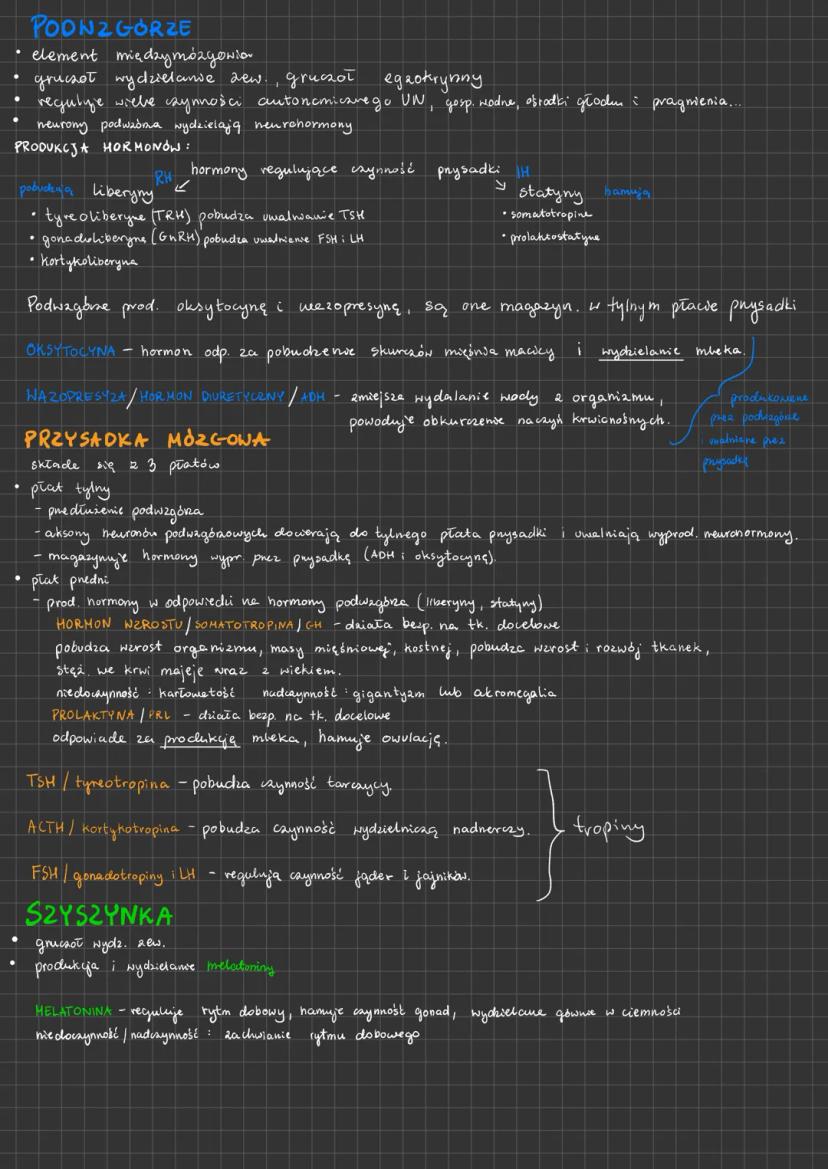 PODWZGÓRZE
• element międzymózgowia
• gruczoł wydzielania zew., gruczoł egzokrynny
• reguluje wiele czynności autonomicznego UN, gosp. wodne, ośrodki głodu i pragnienia...
• neurony podwzgórza wydzielają neurohormony
PRODUKCJA HORMONÓW:
hormony regulujące czynność przysadki
RH IH
pobudzają liberyny statyny hamują
• tyreoliberyna (TRH) pobudza uwalnianie TSH
• gonadoliberyna (GnRH) pobudza uwalnienie FSH i LH
• kortykoliberyna
• somatotropina
• prolaktostatyna
Podwzgórze prod. oksytocynę i wazopresynę, są one magazyn. w tylnym płacie przysadki
OKSYTOCYNA – hormon odp. za pobudzenie skurczów mięśnia macicy i wydzielanie mleka.
WAZOPRESYZA/HORMON DIURETYCZNY/ADH – zmiejsza wydalanie wody z organizmu,
powoduje obkurczenie naczyń krwionośnych.
produkowane
przez podwzgórze
i uwalniane przez
przysadkę
PRZYSADKA MÓZGOWA
składa się z 3 płatów
• płat tylny
– przedłużenie podwzgórza
– aksony neuronów podwzgórzowych docierają do tylnego płata przysadki i uwalniają wyprod. neurohormony.
– magazynuje hormony wypr. przez przysadkę (ADH i oksytocynę).
• płat przedni
– prod. hormony w odpowiedzi na hormony podwzgórza (liberyny, statyny)
HORMON WZROSTU/SOMATOTROPINA/GH – działa bezp. na tk. docelowe
pobudza wzrost organizmu, masy mięśniowej, kostnej, pobudza wzrost i rozwój tkanek,
stęż. we krwi maleje wraz z wiekiem.
niedoczynność: karłowatość nadczynność: gigantyzm lub akromegalia
PROLAKTYNA/PRL – działa bezp. na tk. docelowe
odpowiada za produkcję mleka, hamuje owulację.
TSH / tyreotropina – pobudza czynność tarczycy.
ACTH / kortykotropina – pobudza czynność wydzielniczą nadnerczy.
tropiny
FSH / gonadotropiny i LH – regulują czynność jąder i jajników.
SZYSZYNKA
• gruczoł wydz. zew.
• produkcja i wydzielanie melatoniny
MELATONINA – reguluje rytm dobowy, hamuje czynność gonad, wydzielana główne w ciemności
niedoczynność/nadczynność: zachwianie rytmu dobowego